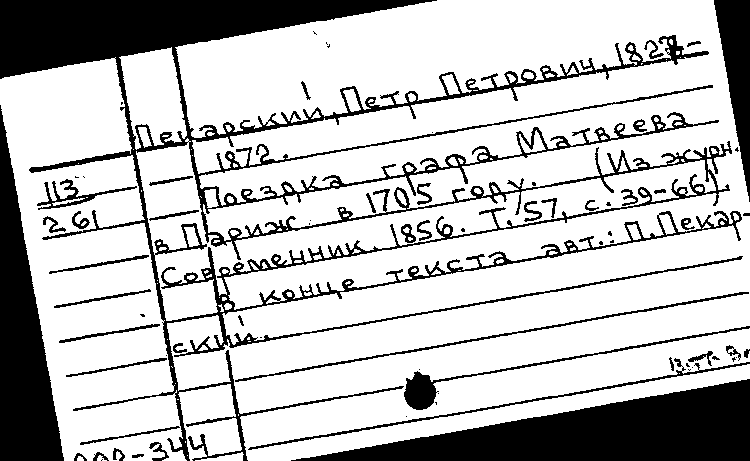 Пекарский, Петр Петрович, 1827-
1872.
113
261
Поездка графа Матвеева
в Париж в 1705 году. (Из журн.
Современник. 1856. Т. 57, с. 39-66)
В конце текста авт.: П. Пекар-
ский.
-344